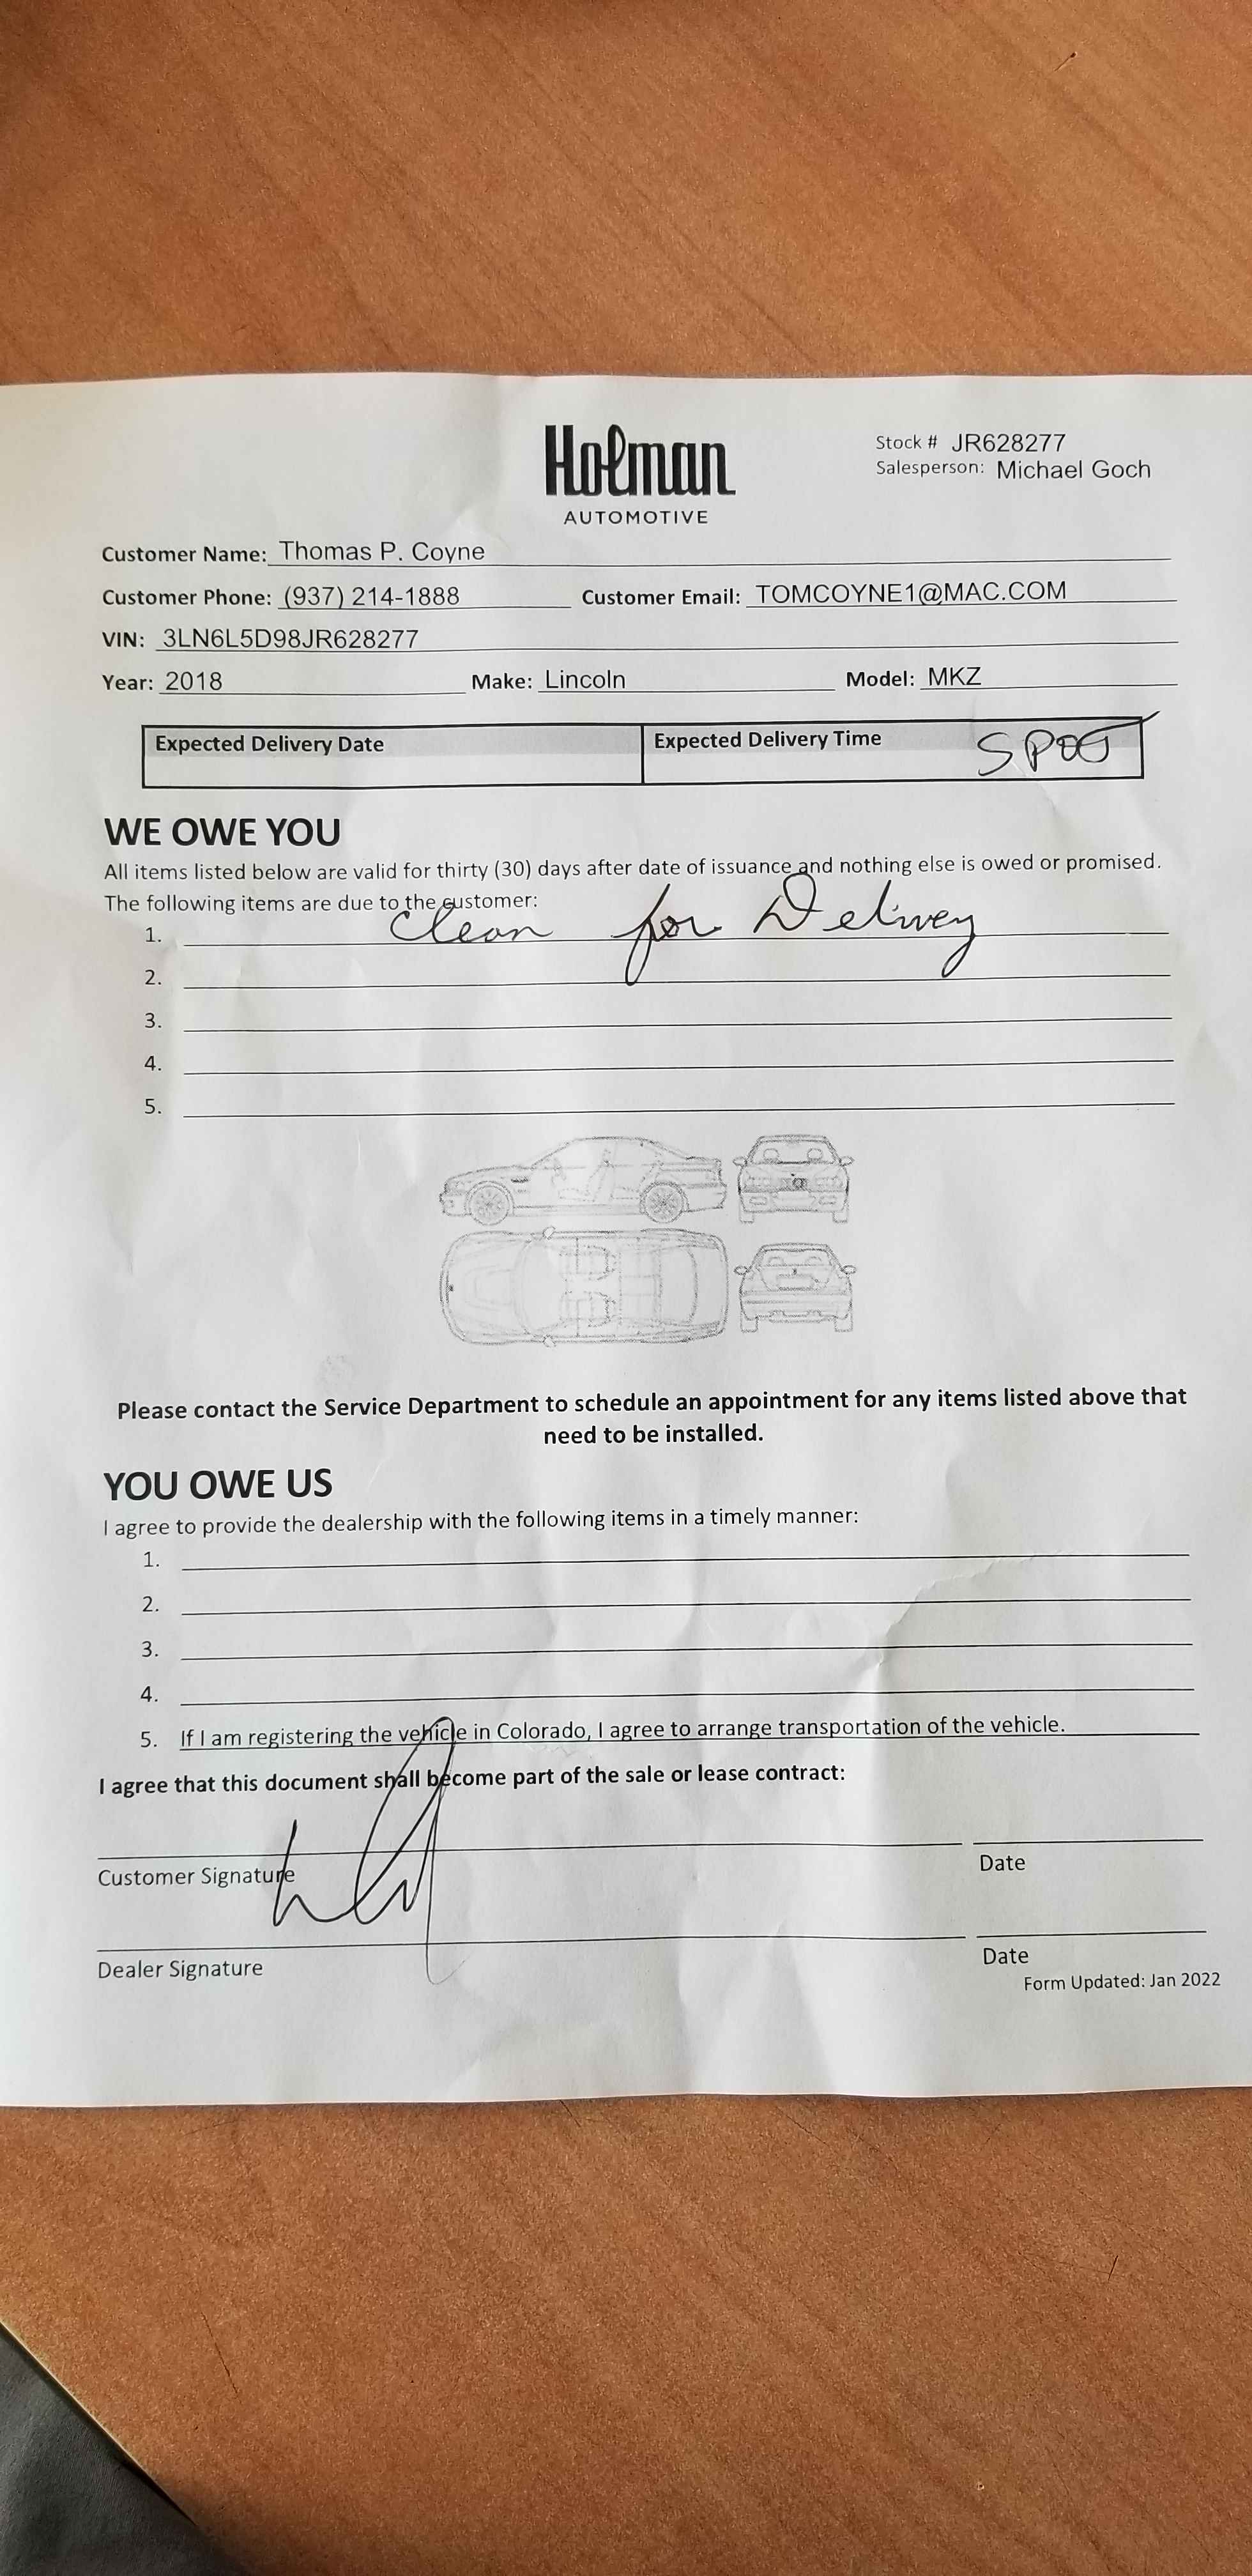 Holman
AUTOMOTIVE
Stock # JR628277
Salesperson: Michael Goch
Customer Name: Thomas P. Coyne
Customer Phone: (937) 214-1888 Customer Email: TOMCOYNE1@MAC.COM
VIN: 3LN6L5D98JR628277
Year: 2018 Make: Lincoln Model: MKZ
Expected Delivery Date Expected Delivery Time SPOT
WE OWE YOU
All items listed below are valid for thirty (30) days after date of issuance and nothing else is owed or promised.
The following items are due to the customer:
1. Clean for Delivery
2.
3.
4.
5.
Please contact the Service Department to schedule an appointment for any items listed above that
need to be installed.
YOU OWE US
I agree to provide the dealership with the following items in a timely manner:
1.
2.
3.
4.
5. If I am registering the vehicle in Colorado, I agree to arrange transportation of the vehicle.
I agree that this document shall become part of the sale or lease contract:
Customer Signature Date
Dealer Signature Date
Form Updated: Jan 2022